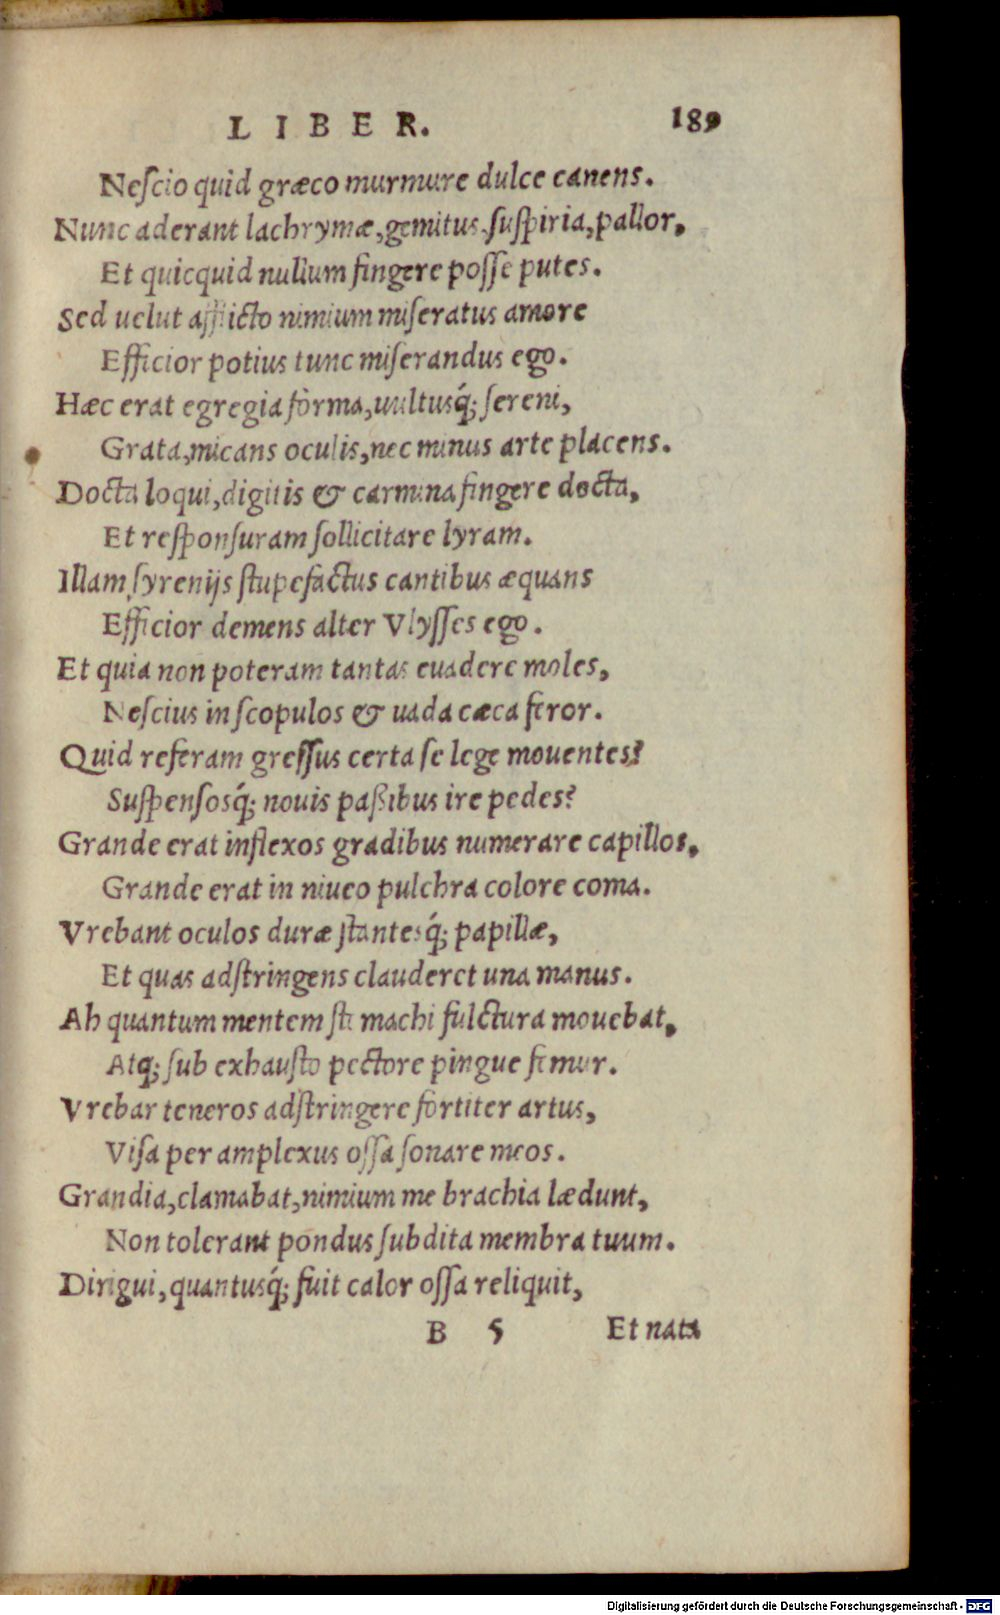 LIBER. 189
Neſcio quid græco murmure dulce canens.
Nunc aderant lachrymæ, gemitus, ſuſpiria, pallor,
Et quicquid nullum fingere poſſe putes.
Sed uelut afflicto nimium miſeratus amore
Efficior potius tunc miſerandus ego.
Hæc erat egregia forma, uultusq́; ſereni,
Grata, micans oculis, nec minus arte placens.
Docta loqui, digitis & carmina fingere docta,
Et reſponſuram ſollicitare lyram.
Illam ſyrenijs ſtupefactus cantibus æquans
Efficior demens alter Vlyſſes ego.
Et quia non poteram tantas euadere moles,
Neſcius in ſcopulos & uada cæca feror.
Quid referam greſſus certa ſe lege mouentes?
Suſpenſosq́; nouis paßibus ire pedes?
Grande erat inflexos gradibus numerare capillos,
Grande erat in niueo pulchra colore coma.
Vrebant oculos duræ ſtantesq́; papillæ,
Et quas adſtringens clauderet una manus.
Ah quantum mentem ſtomachi fulctura mouebat,
Atq; ſub exhauſto pectore pingue femur.
Vrebar teneros adſtringere fortiter artus,
Viſa per amplexus oſſa ſonare meos.
Grandia, clamabat, nimium me brachia lædunt,
Non tolerant pondus ſubdita membra tuum.
Dirigui, quantusq́; fuit calor oſſa reliquit,
B 5 Et nata
Digitalisierung gefördert durch die Deutsche Forschungsgemeinschaft - DFG